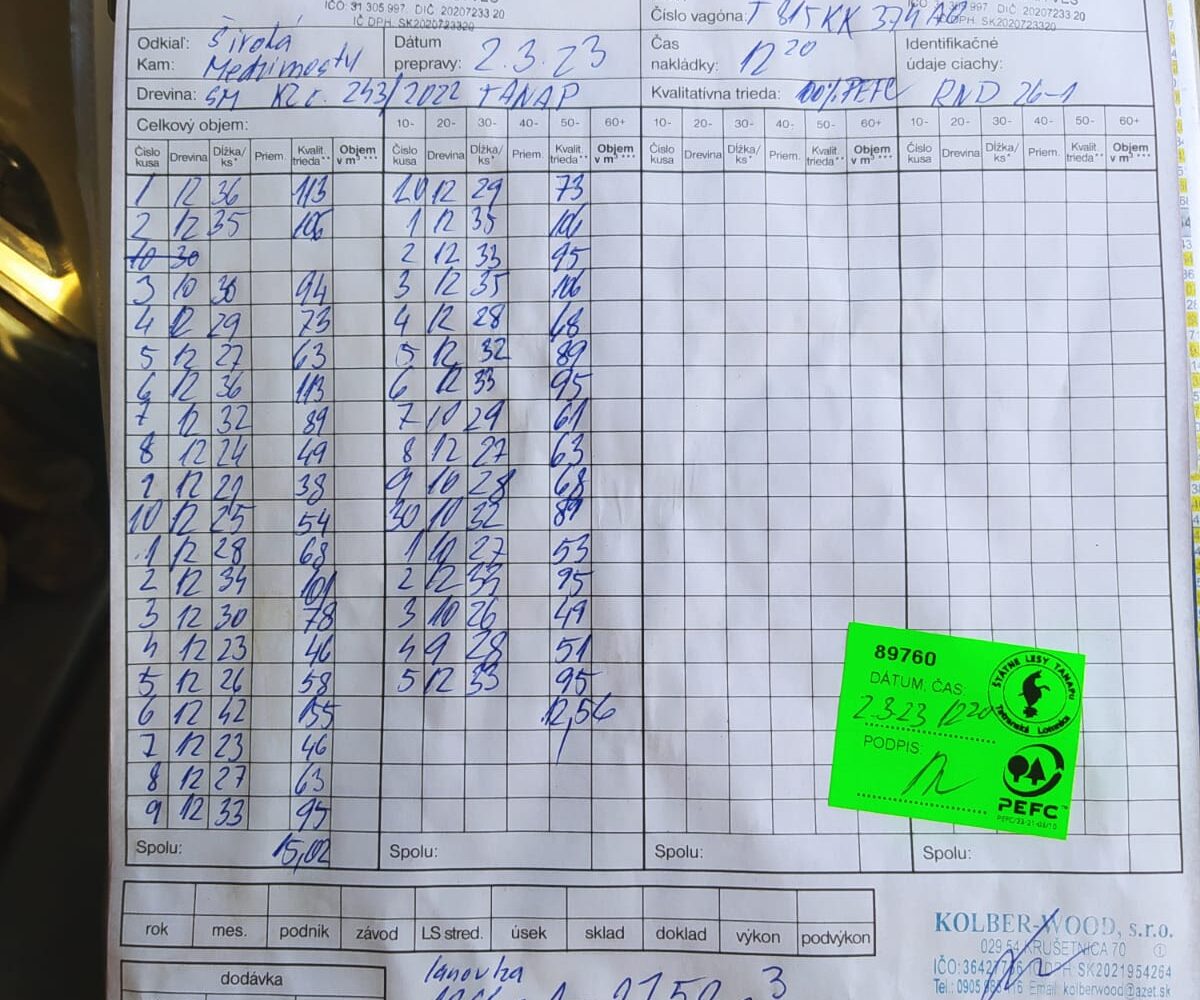 IČO: 31 305 997 DIČ: 20207233 20
IČ DPH: SK2020723320
Číslo vagóna: T 815KK 374 AC
DPH: SK2020723320
Odkiaľ: Široká
Kam: Medzimosty
Dátum prepravy: 2.3.23
Čas nakládky: 12 20
Identifikačné údaje ciachy:
Drevina: SM K2 č. 243/2022 TANAP
Kvalitatívna trieda: 100% PEFC RND 26-1
Celkový objem: 10- 20- 30- 40- 50- 60+ 10- 20- 30- 40- 50- 60+ 10- 20- 30- 40- 50- 60+
Číslo kusa Drevina Dĺžka/ks* Priem. Kvalit. trieda** Objem v m³*** Číslo kusa Drevina Dĺžka/ks* Priem. Kvalit. trieda** Objem v m³*** Číslo kusa Drevina Dĺžka/ks* Priem. Kvalit. trieda** Objem v m³*** Číslo kusa Drevina Dĺžka/ks* Priem. Kvalit. trieda** Objem v m³***
1 12 36 113 20 12 29 73
2 12 35 106 1 12 35 106
10 30 2 12 33 95
3 10 30 94 3 12 35 106
4 12 29 73 4 12 28 68
5 12 27 63 5 12 32 89
6 12 36 113 6 12 33 95
7 12 32 89 7 10 29 61
8 12 24 49 8 12 27 63
9 12 21 38 9 10 28 68
10 12 25 54 30 10 32 89
1 12 28 68 1 10 27 53
2 12 34 101 2 12 33 95
3 12 30 78 3 10 26 49
4 12 23 46 4 9 28 51
5 12 26 58 5 12 33 95
6 12 42 155 12,56
7 12 23 46
8 12 27 63
9 12 33 95
Spolu: 15,02 Spolu: Spolu: Spolu:
89760
DÁTUM, ČAS:
2.3.23 1220
PODPIS:
ŠTÁTNE LESY TANAPU
Tatranská Lomnica
PEFC™
rok mes. podnik závod LS stred. úsek sklad doklad výkon podvýkon
dodávka
lanovka
KOLBER-WOOD, s.r.o.
029 54 KRUŠETNICA 70
IČ DPH: SK2021954264
Email: kolberwood@azet.sk